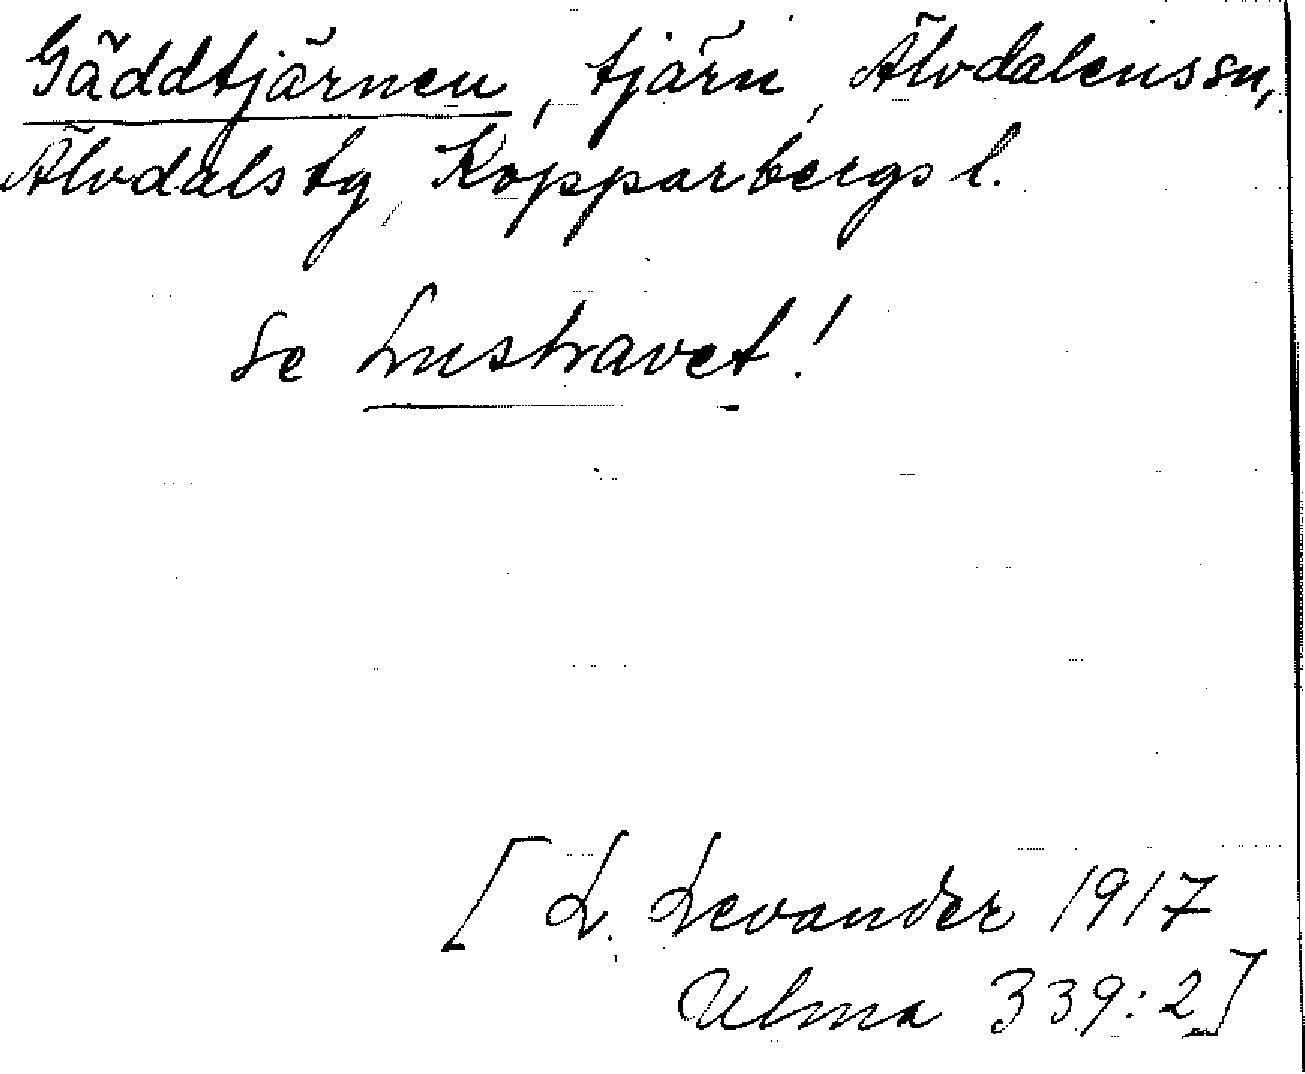 Gäddtjärnen, tjärn, Älvdalens sn,
Älvdals tg, Kopparbergs l.
Se Lustravet!
[L. Levander 1917
Ulma 339:2]